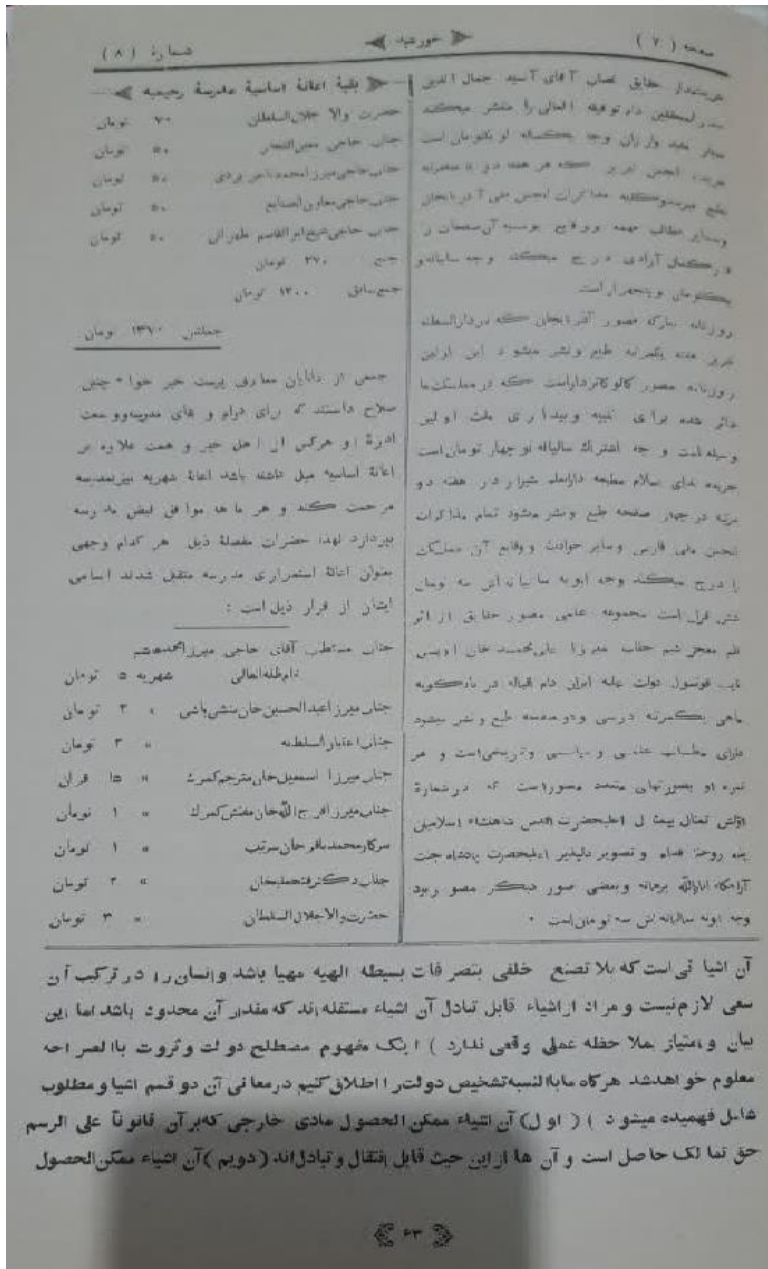 صفحه (۷)
خورشید
شمارهٔ (۸)
حقایق آقای آسید جمال الدین
صدرالمحققین دام توفیقه العالی را منتشر میکند
وجه یکساله او یکتومان است
جریده انجمن تبریز که هر هفته دو سه مرتبه
طبع میشود کلیه مذاکرات انجمن ملی آذربایجان
وسایر مطالب مهمه ووقایع آن صفحات را
در کمال آزادی درج میکند وجه سالیانه
یکتومان و پنجقران است
روزنامه مبارکه مصور آذربایجان که در دارالسلطنه
تبریز هفته یکمرتبه طبع ونشر میشود این اولین
روزنامه مصور است که در مملکت ما
دائر شده برای تنبیه وبیداری ملت اولین
وسیله است وجه اشتراک سالیانه او چهار تومان است
جریده ندای اسلام مطبعه شیراز در هفته دو
مرتبه در چهار صفحه طبع ونشر میشود تمام مذاکرات
انجمن ملی فارس وسایر حوادث و وقایع آن مملکت
را درج میکند وجه ابونه سالیانه اش سه تومان
شش قران است مجموعه علمی مصور حقایق از اثر
قلم معجز شیم جناب میرزا علی محمد خان اویسی
نایب قونسول دولت علیه ایران دام اقباله در بادکوبه
ماهی یکمرتبه درسی ودو صفحه طبع و نشر میشود
دارای مطالب علمی و سیاسی و تاریخی است و هر
نمره او بصورتهای متعدد مصور است که در شمارهٔ
اولش تمثال بیمثال اعلیحضرت اقدس شاهنشاه اسلامیان
پناه روحنا فداه و تصویر دلپذیر اعلیحضرت پادشاه جنت
آرامگاه انارالله برهانه وبعضی صور دیگر مصور بود
وجه ابونه سالیانه اش سه تومان است .
بقیهٔ اعانهٔ اساسیهٔ مدرسهٔ رحیمیه
حضرت والا جلال السلطان ۷۰ تومان
جناب حاجی معین التجار ۵۰ تومان
جناب حاجی میرزا محمد تاجر یزدی ۵۰ تومان
جناب حاجی معاون الصنایع ۵۰ تومان
جناب حاجی شیخ ابوالقاسم طهرانی ۵۰ تومان
جمع ۲۷۰ تومان
جمع سابق ۱۲۰۰ تومان
جملتان ۱۴۷۰ تومان
جمعی از دانایان معارف پرست خیر خواه چنین
صلاح دانستند که برای دوام و بقای مدرسه ووسعت
ادارهٔ او هرکس از اهل خیر و همت علاوه بر
اعانهٔ اساسیه میل داشته باشد اعانهٔ شهریه نیز بمدرسه
مرحمت کند و هر ماهه موافق قبض مدرسه
بپردازد لهذا حضرات مفصلهٔ ذیل هر کدام وجهی
بعنوان اعانهٔ استمراری مدرسه متقبل شدند اسامی
ایشان از قرار ذیل است :
جناب مستطاب آقای حاجی میرزا محمد هاشم
دام ظله العالی شهریه ۵ تومان
جناب میرزا عبدالحسین خان منشی باشی » ۲ تومان
جناب اعتبار السلطنه » ۳ تومان
جناب میرزا اسمعیل خان مترجم کمرک » ۱۵ قران
جناب میرزا فرج الله خان مفتش کمرک » ۱ تومان
سرکار محمد باقر خان سرتیب » ۱ تومان
جناب دکتر فتحعلیخان » ۲ تومان
حضرت والا جلال السلطان » ۳ تومان
آن اشیا ئی است که بلا تصنع خلقی بتصرفات بسیطه الهیه مهیا باشد وانسان را در ترکیب آن
سعی لازم نیست و مراد از اشیاء قابل تبادل آن اشیاء مستقله اند که مقدار آن محدود باشد اما این
بیان و امتیاز بملا حظه عملی وقعی ندارد ) اینک مفهوم مصطلح دولت وثروت باالصراحه
معلوم خواهد شد هرگاه ما باالنسبه تشخیص دولت را اطلاق کنیم درمعانی آن دو قسم اشیا و مطلوب
شامل فهمیده میشود ) ( اول) آن اشیاء ممکن الحصول مادی خارجی که بر آن قانوناً علی الرسم
حق تمالک حاصل است و آن ها از این حیث قابل انتقال و تبادل اند (دویم )آن اشیاء ممکن الحصول
۶۳